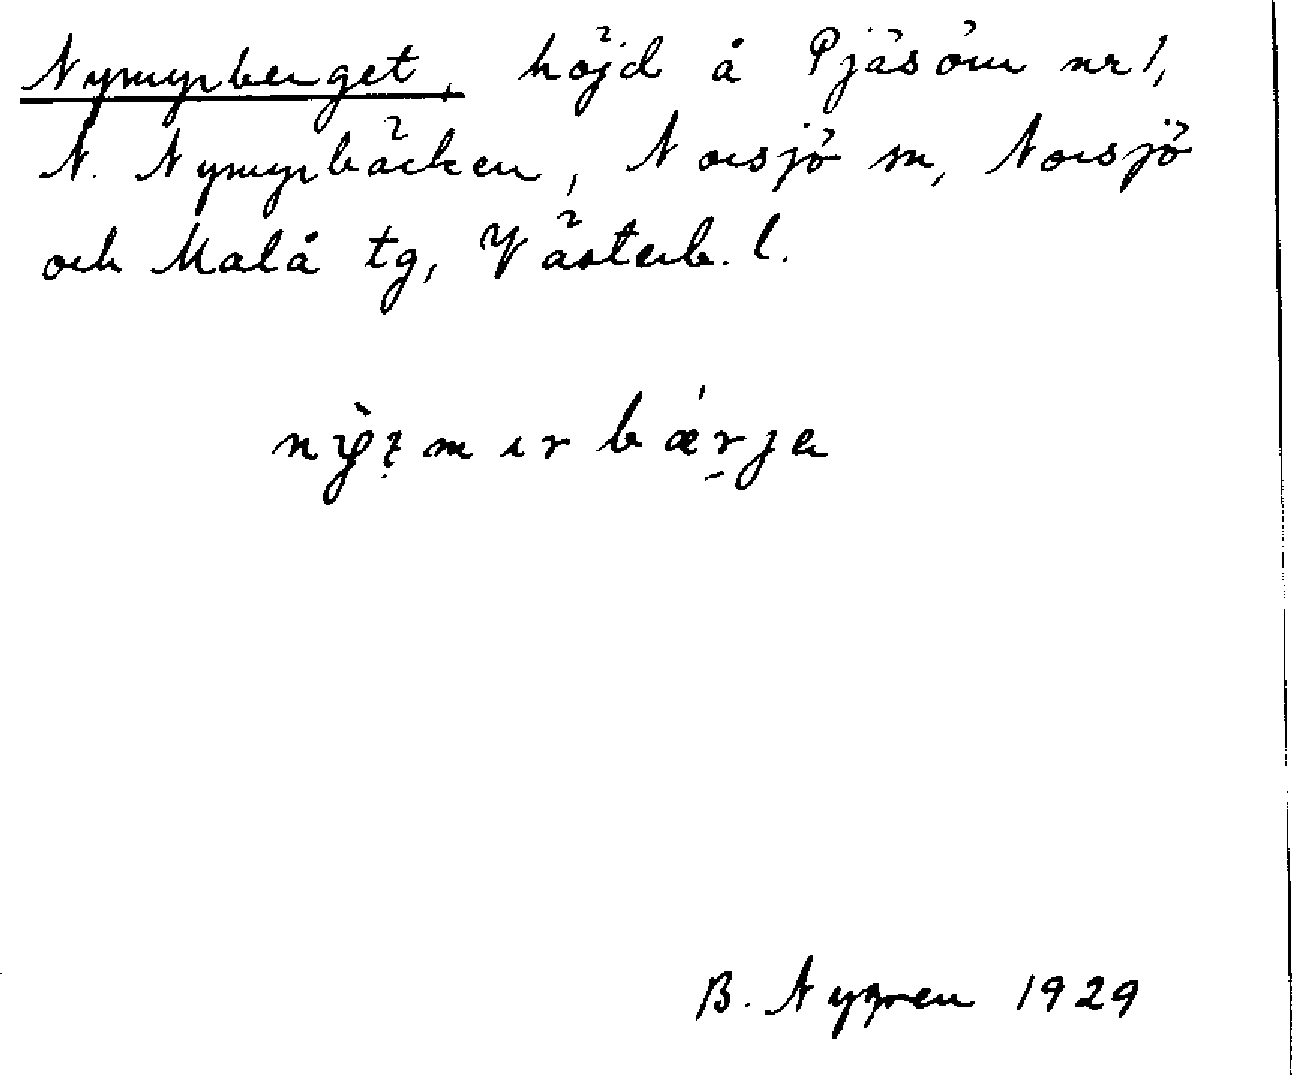 Nymyrberget, höjd å Pjäsörn nr 1,
N. Nymyrbäcken, Norsjö sn, Norsjö
och Malå tg, Västerb. l.
B. Nygren 1929